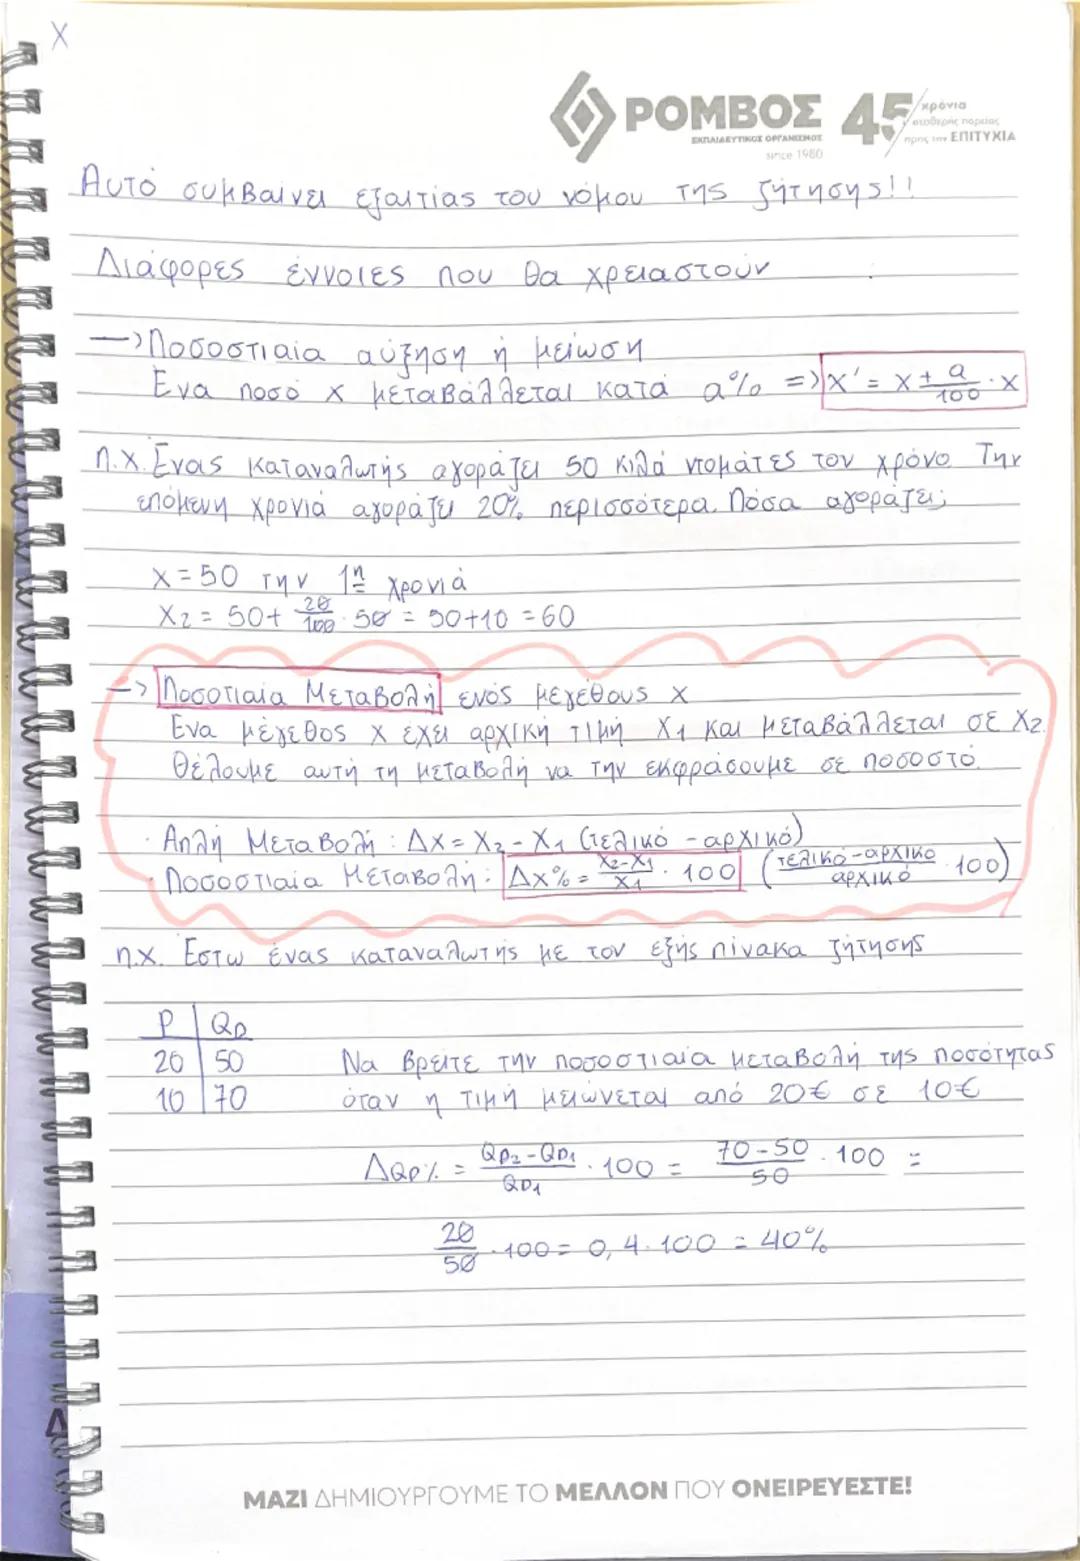 X
ΡΟΜΒΟΣ 45 χρόνια σταθερής πορείας προς την ΕΠΙΤΥΧΙΑ
ΕΚΠΑΙΔΕΥΤΙΚΟΣ ΟΡΓΑΝΙΣΜΟΣ
since 1980
Αυτό συμβαίνει εξαιτίας του νόμου της ζήτησης!!
Διάφορες έννοιες που θα χρειαστούν
→ Ποσοστιαία αύξηση ή μείωση
Ένα ποσό x μεταβάλλεται κατά α% => x' = x ± α/100 · x
π.χ. Ένας καταναλωτής αγοράζει 50 κιλά ντομάτες τον χρόνο. Την
επόμενη χρονιά αγοράζει 20% περισσότερα. Πόσα αγοράζει;
x = 50 την 1η χρονιά
x2 = 50 + 20/100 · 50 = 50+10 = 60
→ Ποσοτιαία Μεταβολή ενός μεγέθους x
Ένα μέγεθος x έχει αρχική τιμή x1 και μεταβάλλεται σε x2.
Θέλουμε αυτή τη μεταβολή να την εκφράσουμε σε ποσοστό.
· Απλή Μεταβολή : Δx = x2 - x1 (τελικό - αρχικό)
· Ποσοστιαία Μεταβολή : Δx% = x2-x1/x1 · 100 (τελικό-αρχικό/αρχικό · 100)
π.χ. Έστω ένας καταναλωτής με τον εξής πίνακα ζήτησης
P | QD
20 | 50 Να βρείτε την ποσοστιαία μεταβολή της ποσότητας
10 | 70 όταν η τιμή μειώνεται από 20€ σε 10€
ΔQD% = QD2-QD1/QD1 · 100 = 70-50/50 · 100 =
20/50 · 100 = 0,4 · 100 = 40%
ΜΑΖΙ ΔΗΜΙΟΥΡΓΟΥΜΕ ΤΟ ΜΕΛΛΟΝ ΠΟΥ ΟΝΕΙΡΕΥΕΣΤΕ!